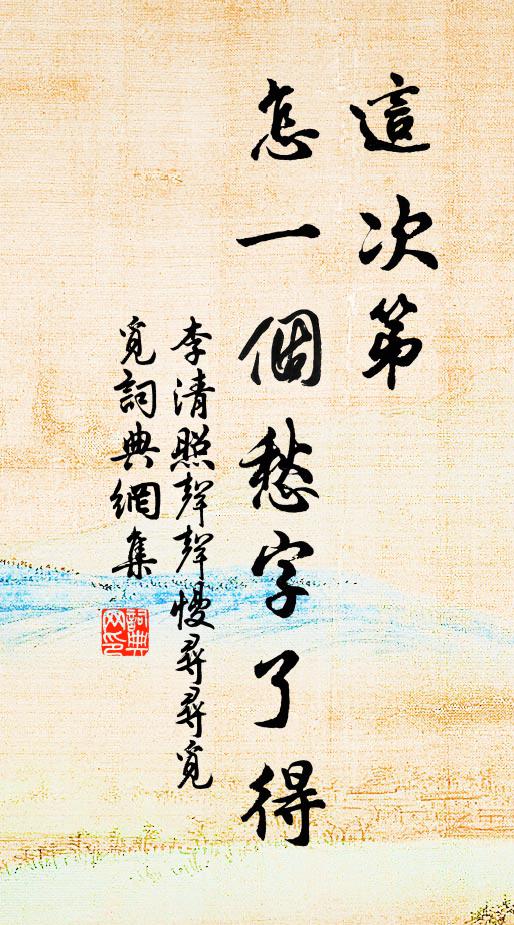 這次第
怎一個愁字了得
李清照聲聲慢尋尋覓
覓詞典網集
詞典
网印